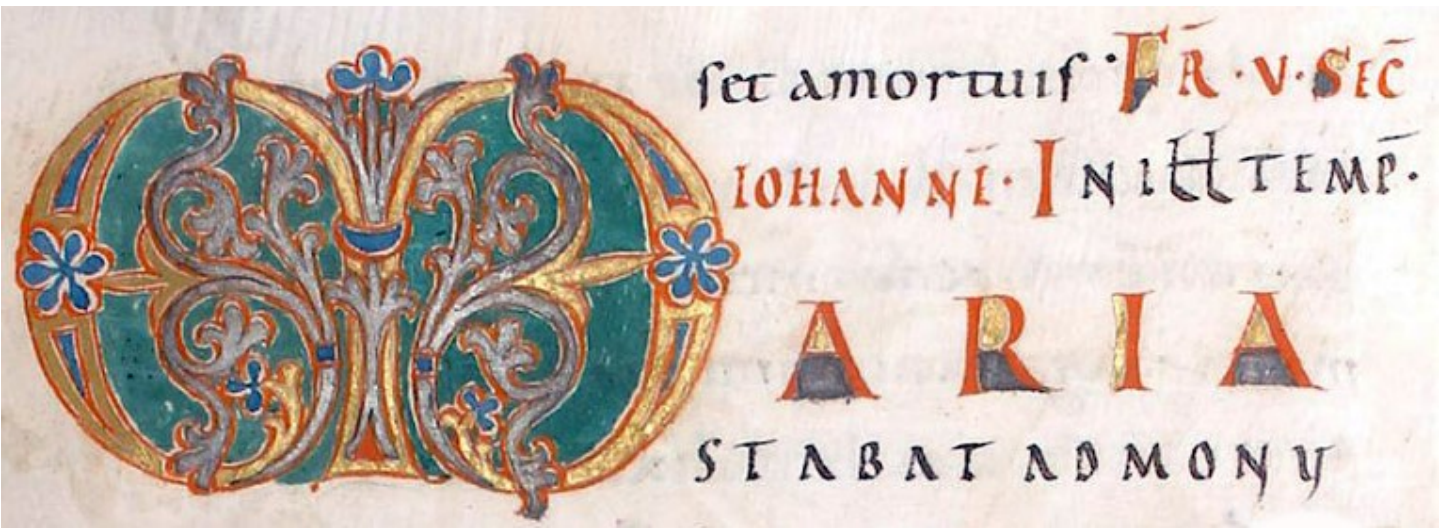 set a mortuis · FR̄ · V · SEC̄
IOHANNĒ · IN ILL TEMP̄ ·
MARIA
STABAT AD MONV